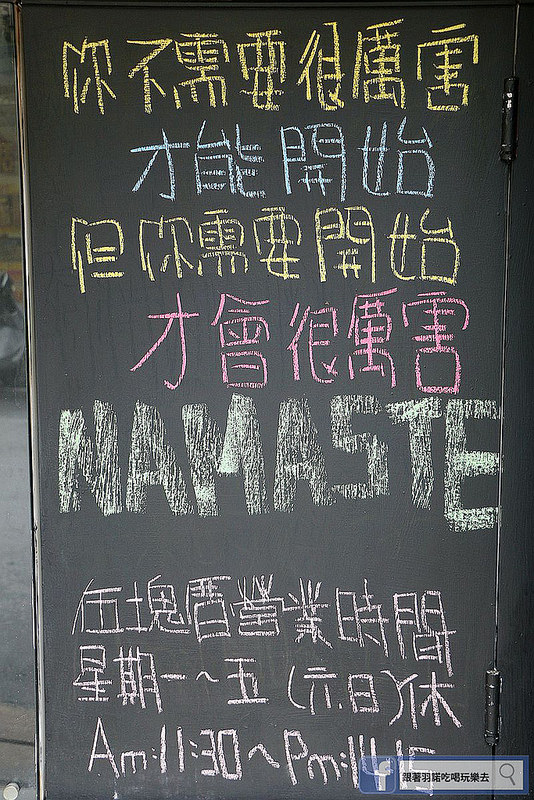 你不需要很厲害
才能開始
但你需要開始
才會很厲害
NAMASTE
伍塊厝營業時間
星期一~五(六.日)休
Am:11:30~Pm:
跟著羽諾吃喝玩樂去